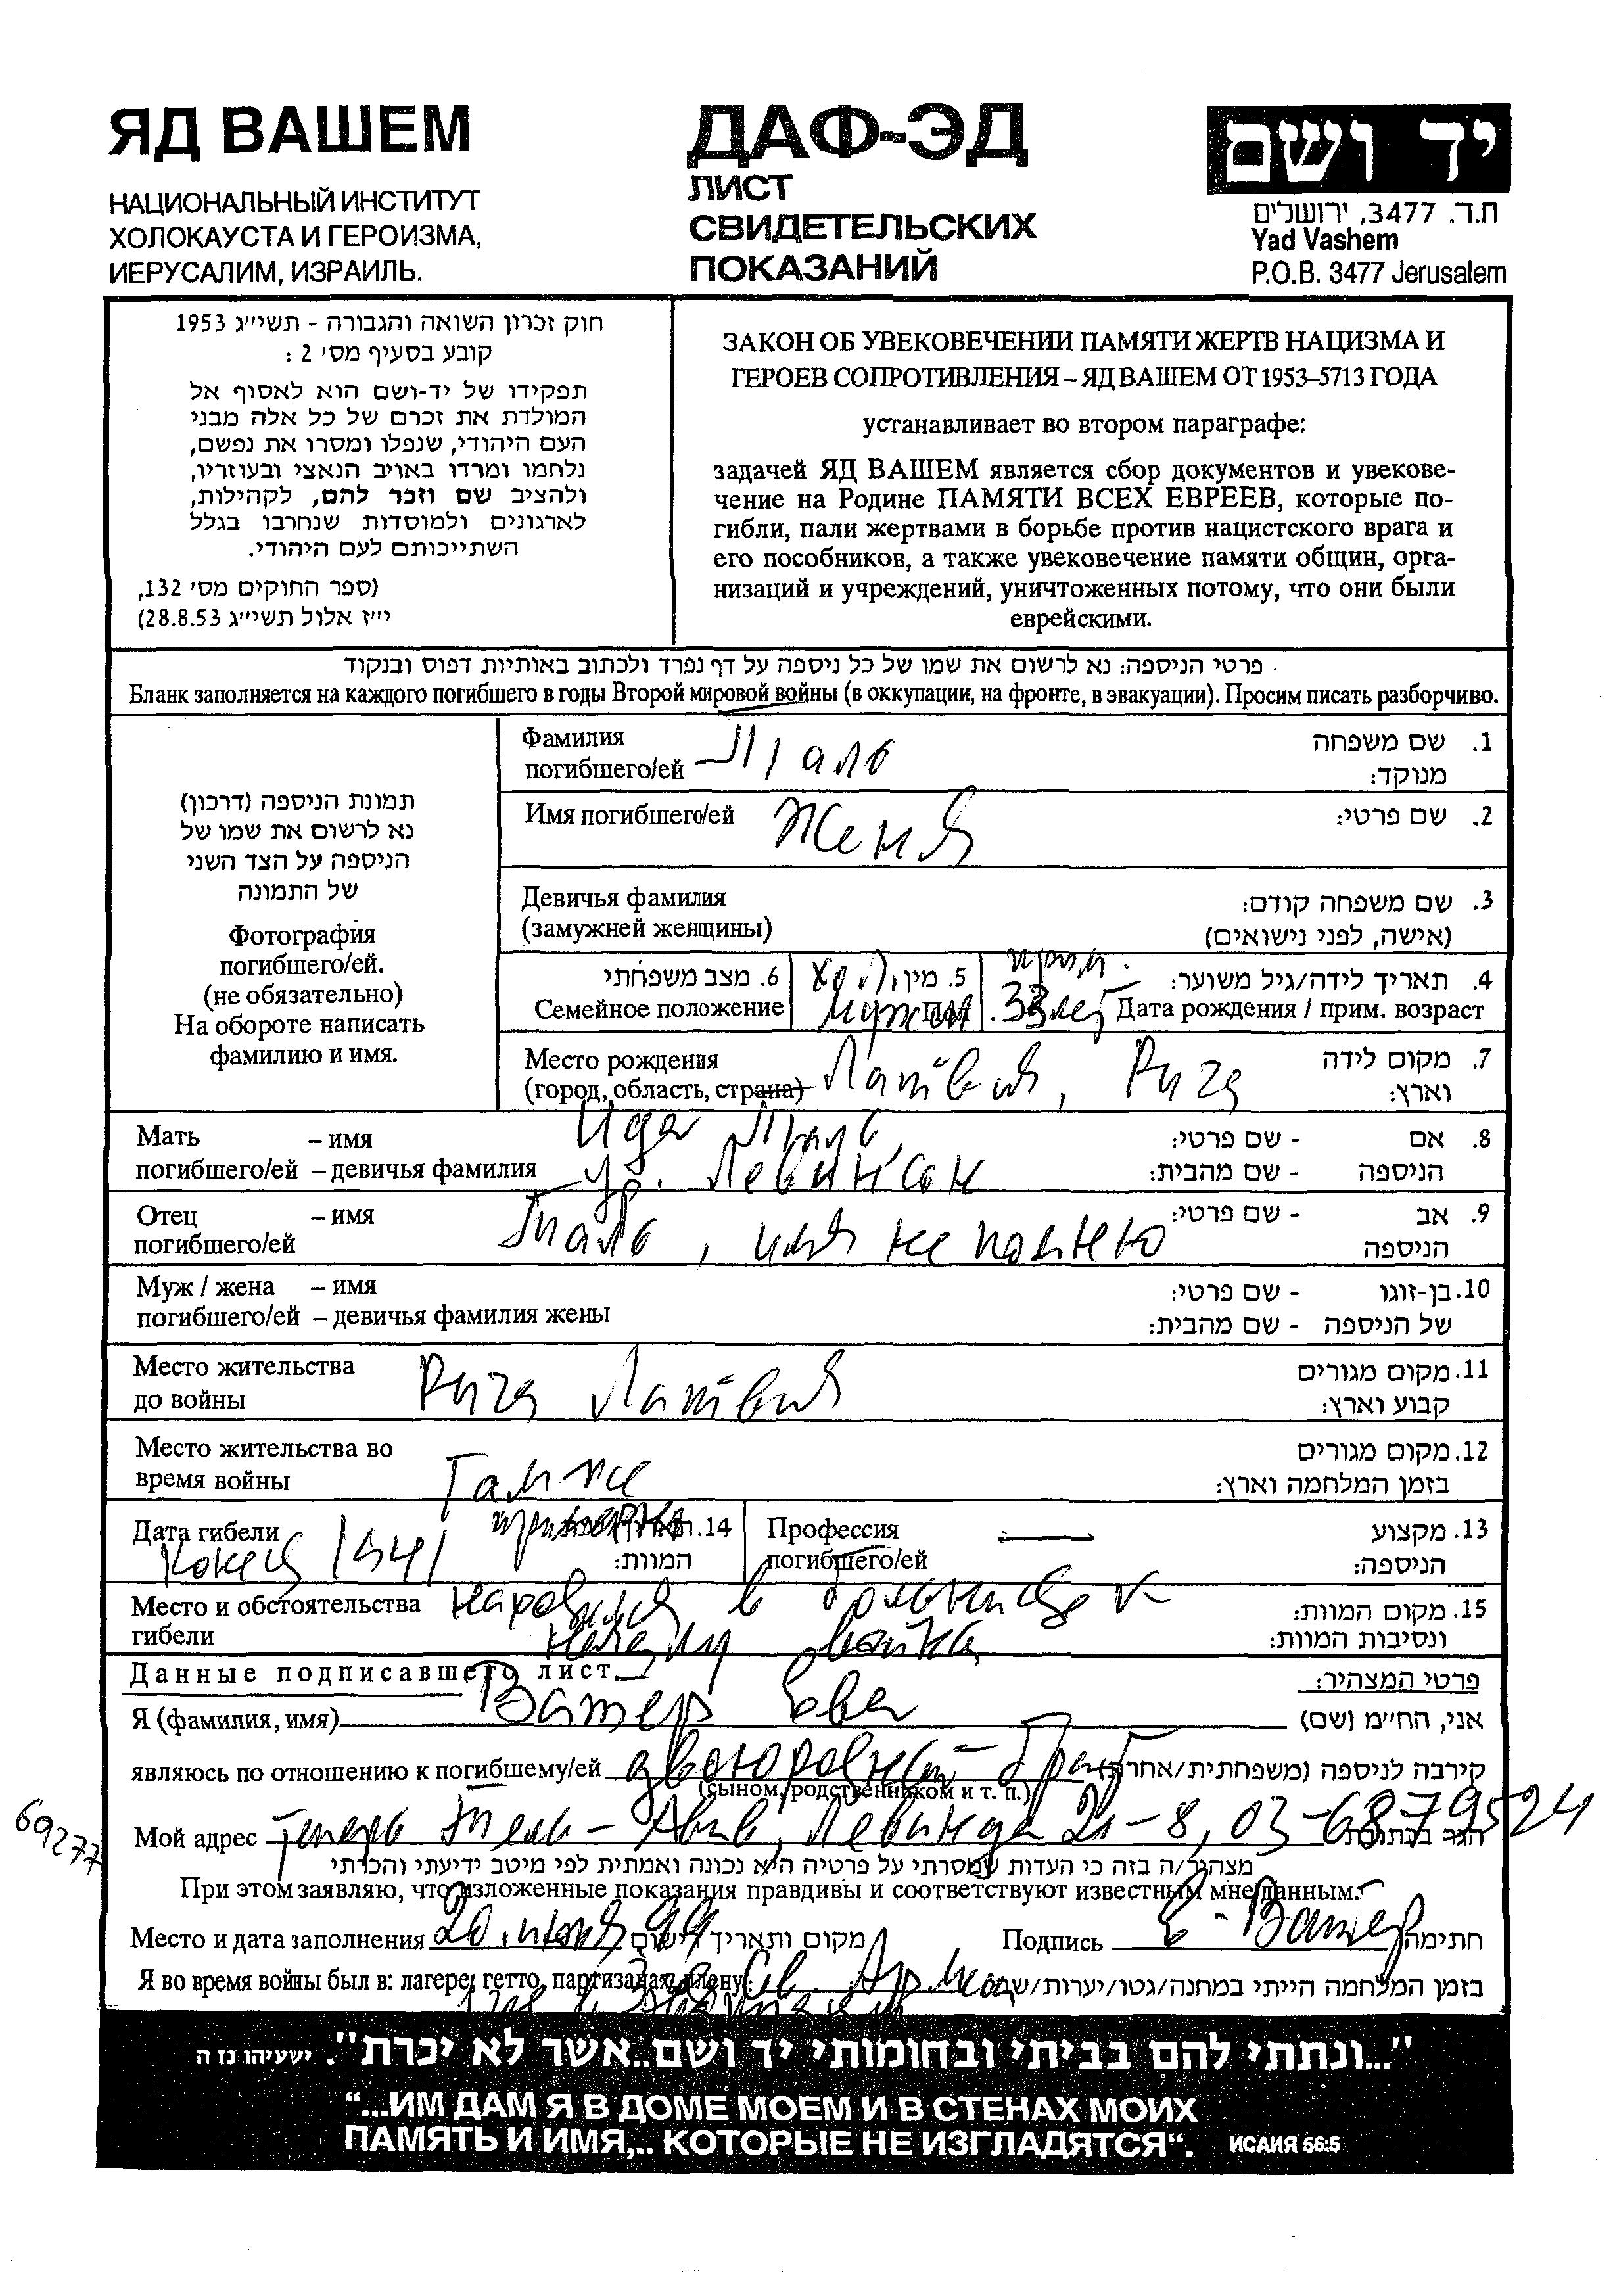 ЯД ВАШЕМ
НАЦИОНАЛЬНЫЙ ИНСТИТУТ
ХОЛОКАУСТА И ГЕРОИЗМА,
ИЕРУСАЛИМ, ИЗРАИЛЬ.
ДАФ-ЭД
ЛИСТ
СВИДЕТЕЛЬСКИХ
ПОКАЗАНИЙ
יד ושם
ת.ד. 3477, ירושלים
Yad Vashem
P.O.B. 3477 Jerusalem
חוק זכרון השואה והגבורה - תשי״ג 1953
קובע בסעיף מס׳ 2 :
תפקידו של יד-ושם הוא לאסוף אל
המולדת את זכרם של כל אלה מבני
העם היהודי, שנפלו ומסרו את נפשם,
נלחמו ומרדו באויב הנאצי ובעוזריו,
ולהציב שם וזכר להם, לקהילות,
לארגונים ולמוסדות שנחרבו בגלל
השתייכותם לעם היהודי.
(ספר החוקים מס׳ 132,
י״ז אלול תשי״ג 28.8.53)
ЗАКОН ОБ УВЕКОВЕЧЕНИИ ПАМЯТИ ЖЕРТВ НАЦИЗМА И
ГЕРОЕВ СОПРОТИВЛЕНИЯ – ЯД ВАШЕМ ОТ 1953–5713 ГОДА
устанавливает во втором параграфе:
задачей ЯД ВАШЕМ является сбор документов и увекове-
чение на Родине ПАМЯТИ ВСЕХ ЕВРЕЕВ, которые по-
гибли, пали жертвами в борьбе против нацистского врага и
его пособников, а также увековечение памяти общин, орга-
низаций и учреждений, уничтоженных потому, что они были
еврейскими.
פרטי הניספה: נא לרשום את שמו של כל ניספה על דף נפרד ולכתוב באותיות דפוס ובנקוד
Бланк заполняется на каждого погибшего в годы Второй мировой войны (в оккупации, на фронте, в эвакуации). Просим писать разборчиво.
תמונת הניספה (דרכון)
נא לרשום את שמו של
הניספה על הצד השני
של התמונה
Фотография
погибшего/ей.
(не обязательно)
На обороте написать
фамилию и имя.
Фамилия погибшего/ей Таль 1. שם משפחה מנוקד:
Имя погибшего/ей Женя 2. שם פרטי:
Девичья фамилия 3. שם משפחה קודם:
(замужней женщины) (אישה, לפני נישואים)
6. מצב משפחתי хол. 5. מין прим. 4. תאריך לידה/גיל משוער:
Семейное положение мужской Пол 33 лет Дата рождения / прим. возраст
Место рождения 7. מקום לידה
(город, область, страна) Латвия, Рига וארץ:
Мать – имя Ида Таль, 8. אם - שם פרטי:
погибшего/ей – девичья фамилия ур. Левинсон הניספה - שם מהבית:
Отец – имя 9. אב - שם פרטי:
погибшего/ей Таль, имя не помню הניספה
Муж / жена – имя 10. בן-זוגו - שם פרטי:
погибшего/ей – девичья фамилия жены של הניספה - שם מהבית:
Место жительства 11. מקום מגורים
до войны Рига Латвия קבוע וארץ:
Место жительства во 12. מקום מגורים
время войны Там же בזמן המלחמה וארץ:
Дата гибели примерно 14. תאריך המוות: Профессия — 13. מקצוע
Конец 1941 погибшего/ей הניספה:
Место и обстоятельства находился в больнице к 15. מקום המוות:
гибели началу войны, ונסיבות המוות:
Данные подписавшего лист. פרטי המצהיר:
Я (фамилия, имя) Ватер Ева אני, הח״מ (שם)
являюсь по отношению к погибшему/ей двоюродный брат קירבה לניספה (משפחתית/אחרת)
(сыном, родственником и т. п.)
69277
Мой адрес теперь Тель-Авив, Левинда 21-8, 03-6879524 הגר בכתובת
מצהיר/ה בזה כי העדות שמסרתי על פרטיה היא נכונה ואמתית לפי מיטב ידיעתי והכרתי
При этом заявляю, что изложенные показания правдивы и соответствуют известным мне данным.
Место и дата заполнения 20 июня 99 מקום ותאריך רישום Подпись Е. Ватер חתימה
Я во время войны был в: лагере, гетто, партизанах, плену: בזמן המלחמה הייתי במחנה/גטו/יערות/שבי
"...ונתתי להם בביתי ובחומותי יד ושם..אשר לא יכרת". ישעיהו נז ה
“...ИМ ДАМ Я В ДОМЕ МОЕМ И В СТЕНАХ МОИХ
ПАМЯТЬ И ИМЯ,.. КОТОРЫЕ НЕ ИЗГЛАДЯТСЯ“. ИСАИЯ 56:5